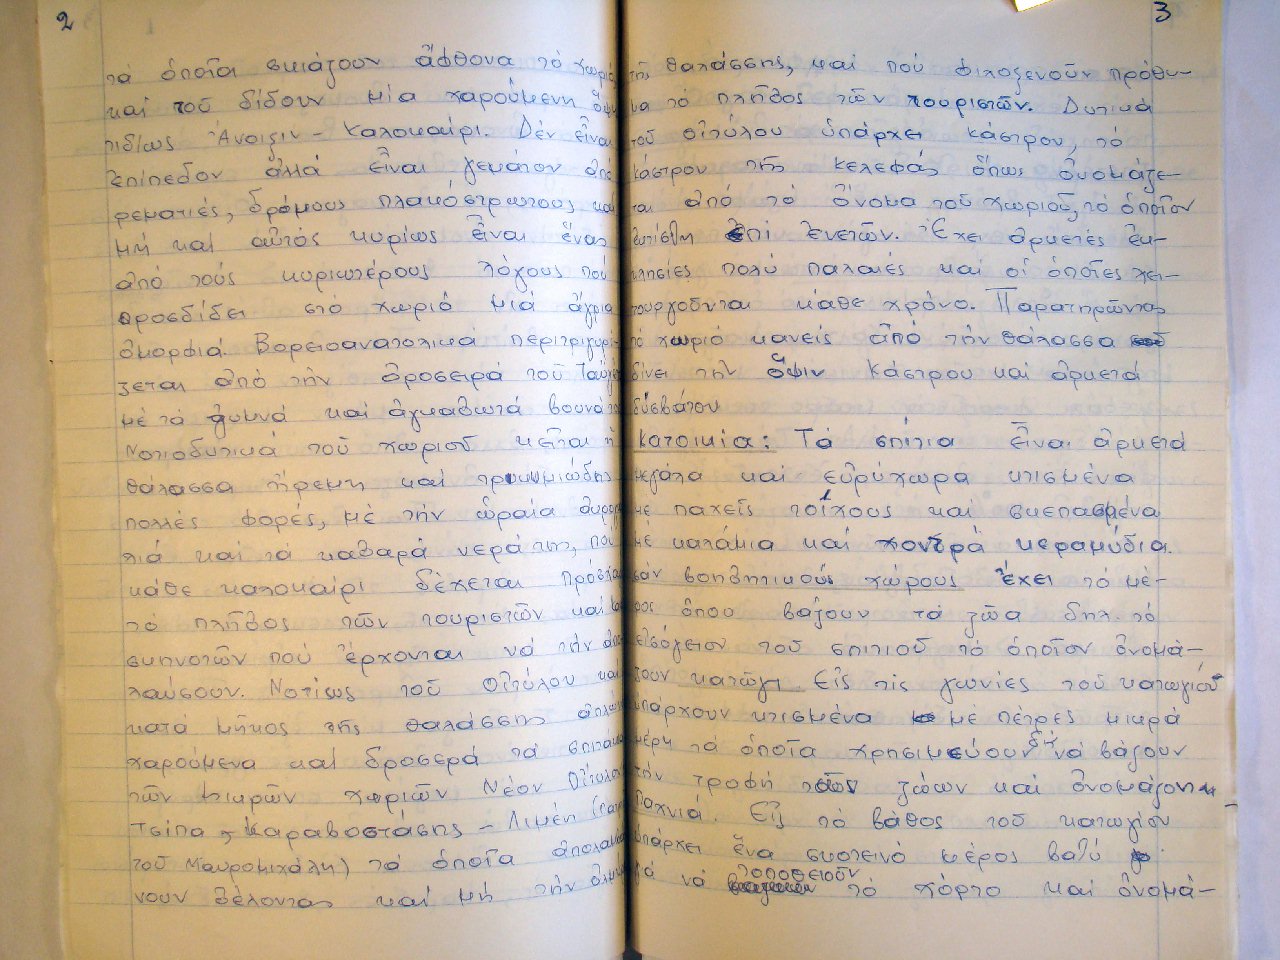 2
τά ὁποῖα σκιάζουν ἄφθονα τό χωριό
καί τοῦ δίδουν μία χαρούμενη ὄψη
ἰδίως Ἄνοιξιν - Καλοκαίρι. Δέν εἶναι
ἐπίπεδον ἀλλά εἶναι γεμάτον ἀπό
ρεματιές, δρόμους πλακόστρωτους καί
μή καί αὐτός κυρίως εἶναι ἕνας
ἀπό τούς κυριωτέρους λόγους πού
προσδίδει στό χωριό μιά ἄγρια
ὀμορφιά. Βορειοανατολικά περιτριγυρί-
ζεται ἀπό τήν ὀροσειρά τοῦ Ταϋγέτ
μέ τά γυμνά καί ἀγκαθωτά βουνά του
Νοτιοδυτικά τοῦ χωριοῦ κεῖται ἡ
θάλασσα ἤρεμη καί τρικυμιώδης
πολλές φορές, μέ τήν ὡραία ἀκρογια
λιά καί τά καθαρά νερά της, πού
κάθε καλοκαίρι δέχεται πρόσχαρα
τό πλῆθος τῶν τουριστῶν καί κα
σκηνοτῶν πού ἔρχονται νά τήν ἀπο
λαύσουν. Νοτίως τοῦ Οἰτύλου καί
κατά μῆκος τῆς θαλάσσης ἁπλών
χαρούμενα καί δροσερά τά σπιτάκια
τῶν μικρῶν χωριῶν Νέον Οἴτυλον
Τσίπα, Καραβοστάσης - Λιμένι
τοῦ Μαυρομιχάλη) τά ὁποῖα ἀπολαμ
νουν θέλοντας καί μή, τήν ἅλμη
3
τῆς θαλάσσης, καί πού φιλοξενοῦν πρόθυ-
μα τό πλῆθος τῶν τουριστῶν. Δυτικά
τοῦ Οἰτύλου ὑπάρχει κάστρον, τό
κάστρον τῆς Κελεφᾶς ὅπως ὀνομάζε-
ται ἀπό τό ὄνομα τοῦ χωριοῦ, τό ὁποῖον
ἐκτίσθη ἐπί Ἐνετῶν. Ἔχει ἀρκετές ἐκ-
κλησίες πολύ παλαιές καί οἱ ὁποῖες λει-
τουργοῦνται κάθε χρόνο. Παρατηρῶντας
τό χωριό κανείς ἀπό τήν θάλασσα
δίνει τήν ὄψιν Κάστρου καί ἀρκετά
δύσβατον
Κατοικία: Τά σπίτια εἶναι ἀρκετά
μεγάλα καί εὐρύχωρα κτισμένα
μέ παχεῖς τοίχους καί σκεπασμένα
μέ καλάμια καί χοντρά κεραμύδια.
Σάν βοηθητικούς χώρους ἔχει τό μέ-
ρος ὅπου βάζουν τά ζῶα δηλ. τό
ἰσόγειον τοῦ σπιτιοῦ τό ὁποῖον ὀνομά-
ζουν κατῶγι. Εἰς τίς γωνίες τοῦ κατωγιοῦ
ὑπάρχουν κτισμένα μέ πέτρες μικρά
μέρη τά ὁποῖα χρησιμεύουν διά νά βάζουν
τήν τροφή τῶν ζώων καί ὀνομάζονται
Παχνιά. Εἰς τό βάθος τοῦ κατωγίου
ὑπάρχει ἕνα σκοτεινό μέρος βαθύ
γιά νά τοποθετοῦν τό χόρτο καί ὀνομά-